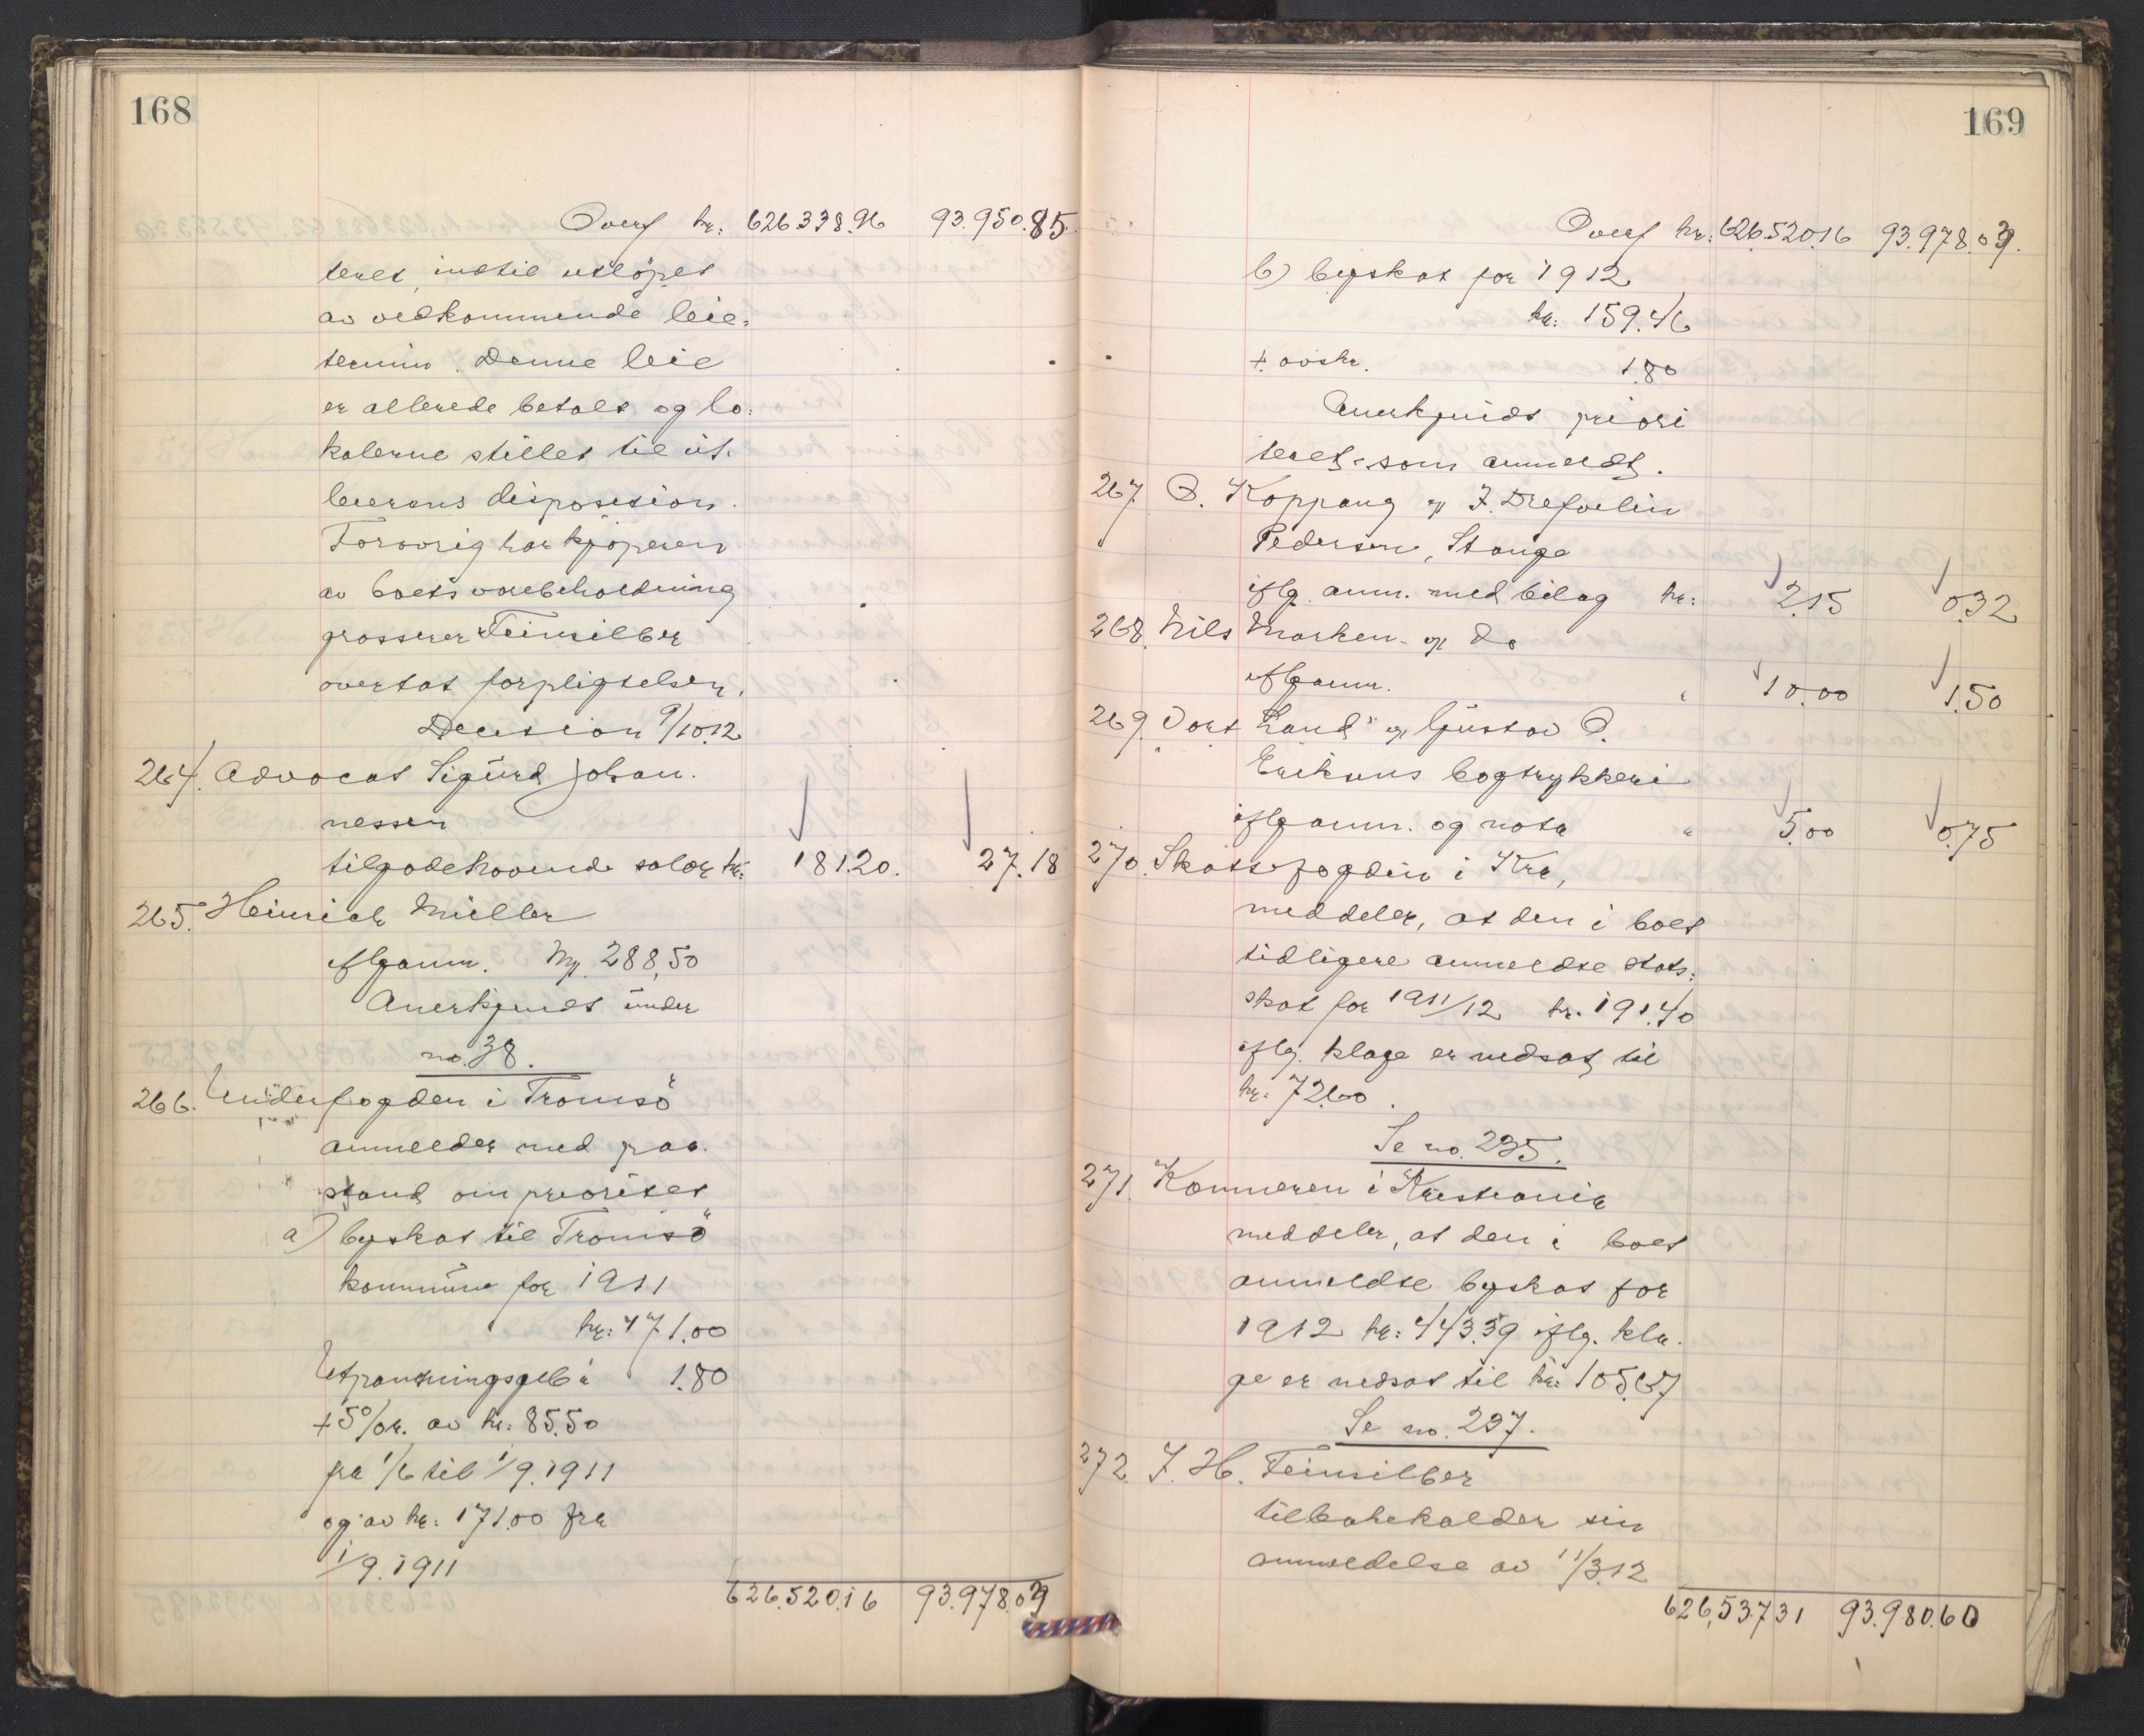 168
Overf kr: 626.338.96 93.950.85
teret, indtil utløpet
av vedkommende leie-
termin. Denne leie
er allerede betalt og lo-
kalerne stillet til ut-
leierens disposition.
Forøvrig har kjøperen
av boets varebeholdning
grosserer Feinsilber
overtat forpligtelsen.
Decision 9/10.12
264. Advocat Sigurd Johan-
nessen
tilgodehavende salær kr: 181.20. 27.18
265. Heinrich Müller
iflg anm. Mg. 288,50
Anerkjendt under
no. 38.
266. Underfogden i Tromsö
anmelder med paa-
stand om prioritet
a) byskat til Tromsö
kommune for 1911
kr: 171.00
Utpantningsgeb " 1.80
+ 5% r. av kr: 85.50
fra 1/6 til 1/9.1911
og av kr: 171.00 fra
1/9.1911
626.520.16 93.978.03
169
Overf kr: 626.520.16 93.978.03.
b) byskat for 1912
kr: 159.46
+ avskr. 1.80
Anerkjendt priori
teret som anmeldt.
267. O. Koppang og J. Drefvelin
Pedersen, Stange
iflg. anm. med bilag kr: 2.15 0.32
268. Nils Morken og do
iflg anm. " 10.00 1.50
269. "Vort Land" og Gustav O.
Eriksens bogtrykkeri
iflg anm. og nota " 5.00 0.75
270. Skattefogden i Kra,
meddeler, at den i boet
tidligere anmeldte stats-
skat for 1911/12 kr. 191.40
iflg. klage er nedsat til
kr. 72.60.
Se no. 235.
271. Kemneren i Kristiania
meddeler, at den i boet
anmeldte byskat for
1912 kr: 443.59 iflg. kla-
ge er nedsat til kr: 105.67
Se no. 237.
272 J. H. Feinsilber
tilbakekalder sin
anmeldelse av 11/3.12
626,537.31 93.980.60